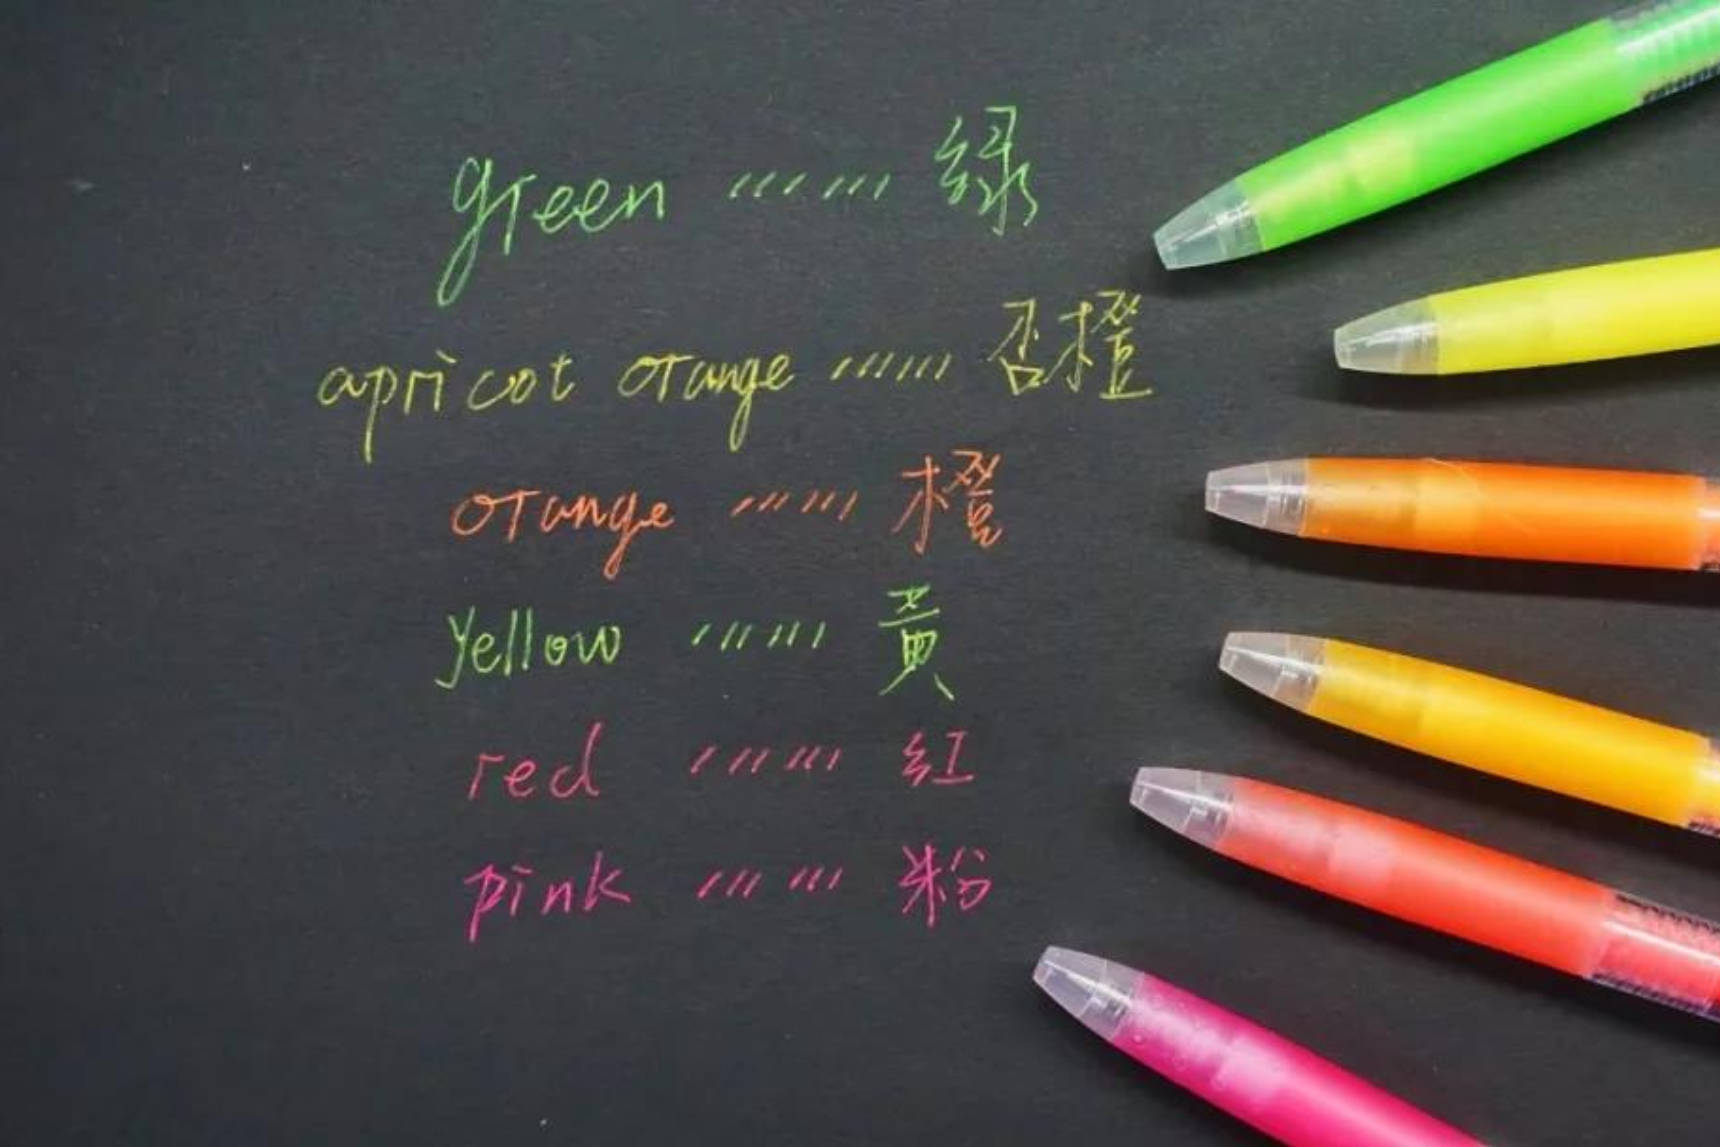 green ······ 绿
apricot orange ······ 杏橙
orange ······ 橙
yellow ······ 黄
red ······ 红
pink ······ 粉